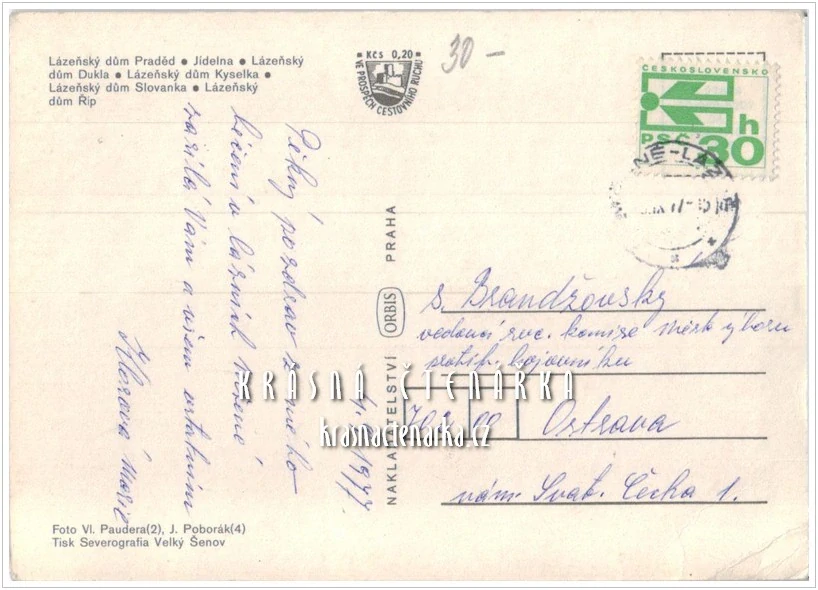 Lázeňský dům Praděd ● Jídelna ● Lázeňský
dům Dukla ● Lázeňský dům Kyselka ●
Lázeňský dům Slovanka ● Lázeňský
dům Říp
Kčs 0,20
VE PROSPĚCH CESTOVNÍHO RUCHU
30 -
ČESKOSLOVENSKO
h
PSČ 30
4. 9. 1977.
Pěkný pozdrav z mého
léčení v lázních
zasílá Vám a všem ostatním
Marie
NAKLADATELSTVÍ ORBIS PRAHA
s. Brandžovský
vedoucí soc. komise měst. výboru
protif. bojovníku
702 00 Ostrava
nám. Svat. Čecha 1.
KRÁSNÁ ČTENÁRKA
krasnactenarka.cz
Foto Vl. Paudera(2), J. Poborák(4)
Tisk Severografia Velký Šenov